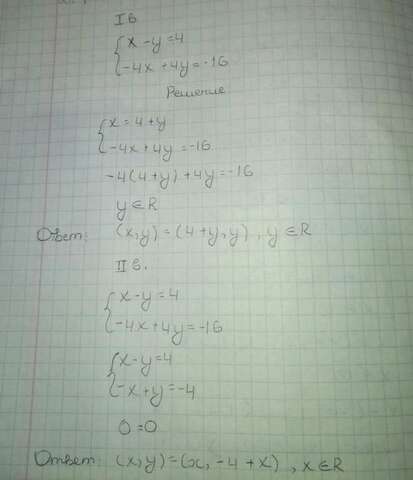 I в
{ x - y = 4
-4x + 4y = -16
Решение
{ x = 4 + y
-4x + 4y = -16
-4(4+y) + 4y = -16
y ∈ R
Ответ: (x,y) = (4+y, y), y ∈ R
II в.
{ x - y = 4
-4x + 4y = -16
{ x - y = 4
-x + y = -4
0 = 0
Ответ: (x,y) = (x, -4 + x), x ∈ R